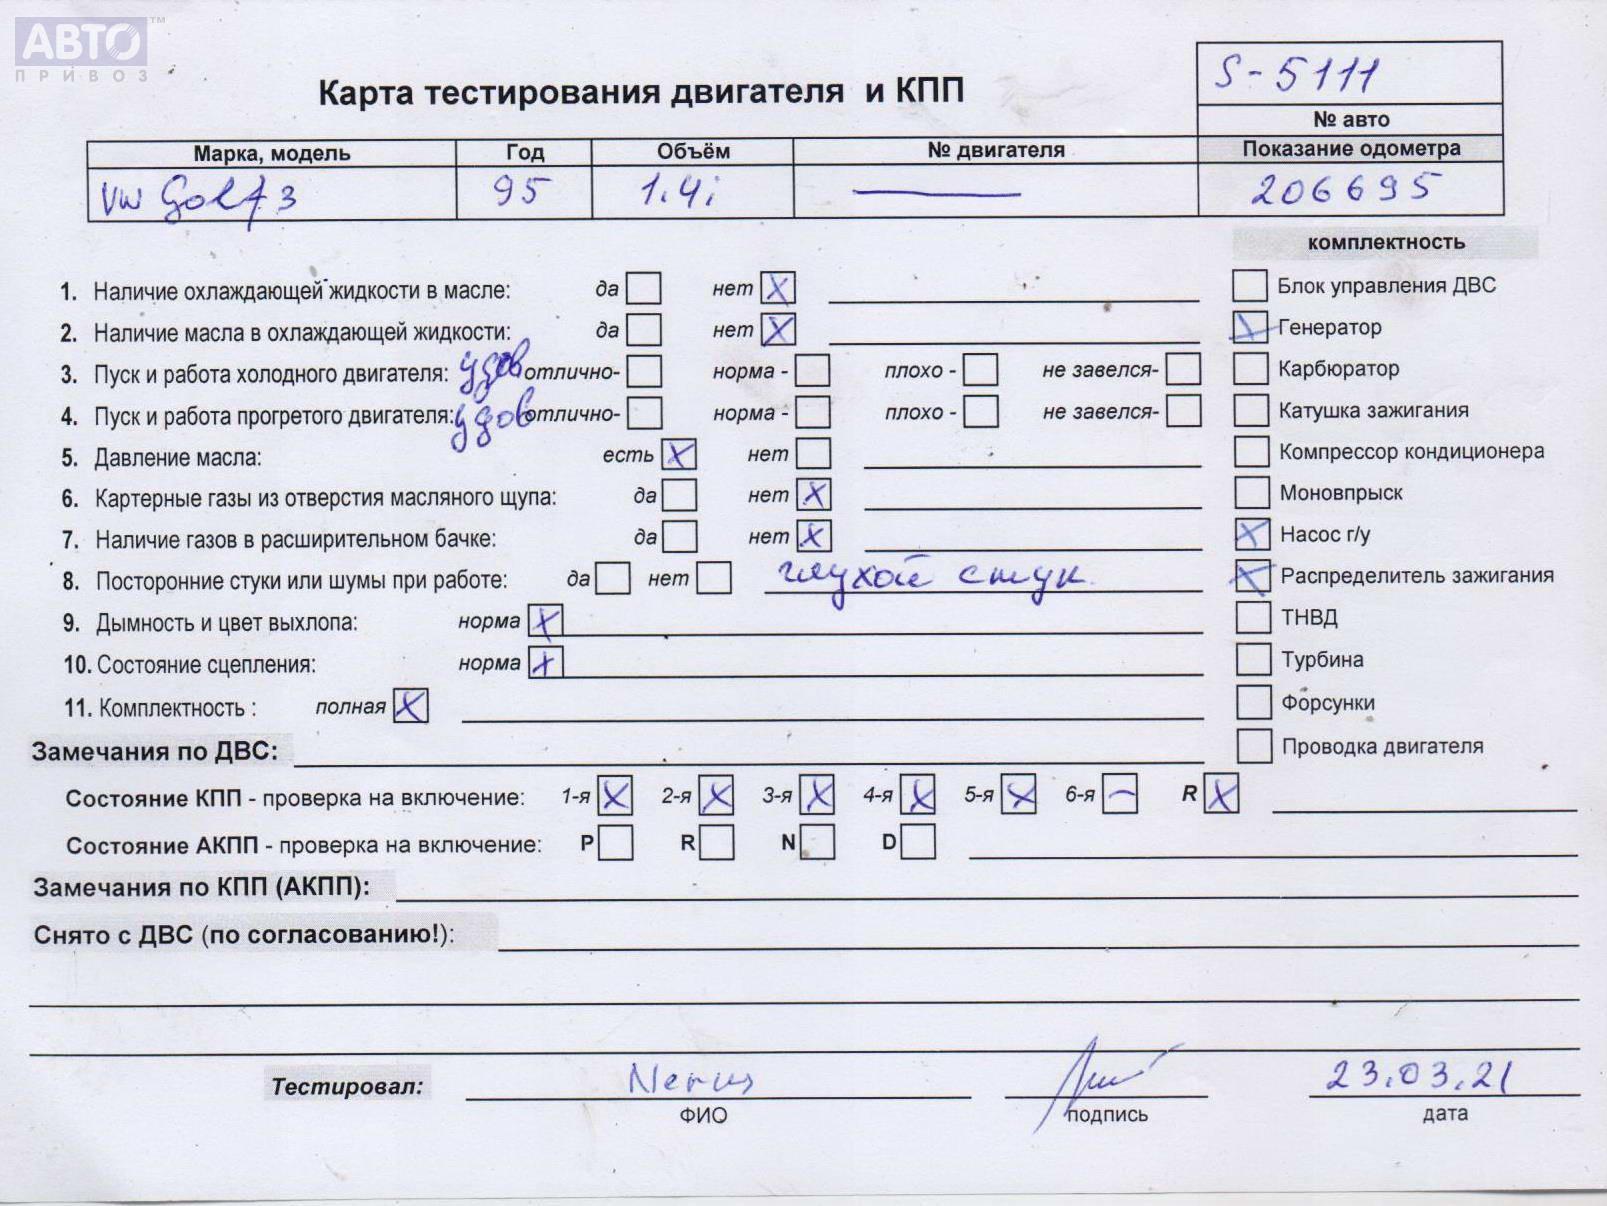 АВТО™
ПРИВОЗ
S-5111
Карта тестирования двигателя и КПП
№ авто
Марка, модель Год Объём № двигателя Показание одометра
VW Golf 3 95 1.4i — 206695
комплектность
1. Наличие охлаждающей жидкости в масле: да нет X Блок управления ДВС
2. Наличие масла в охлаждающей жидкости: да нет X X Генератор
3. Пуск и работа холодного двигателя: удов отлично- норма - плохо - не завелся- Карбюратор
4. Пуск и работа прогретого двигателя: удов отлично- норма - плохо - не завелся- Катушка зажигания
5. Давление масла: есть X нет Компрессор кондиционера
6. Картерные газы из отверстия масляного щупа: да нет X Моновпрыск
7. Наличие газов в расширительном бачке: да нет X X Насос г/у
8. Посторонние стуки или шумы при работе: да нет глухой стук X Распределитель зажигания
9. Дымность и цвет выхлопа: норма X ТНВД
10. Состояние сцепления: норма X Турбина
11. Комплектность : полная X Форсунки
Замечания по ДВС: Проводка двигателя
Состояние КПП - проверка на включение: 1-я X 2-я X 3-я X 4-я X 5-я X 6-я — R X
Состояние АКПП - проверка на включение: P R N D
Замечания по КПП (АКПП):
Снято с ДВС (по согласованию!):
Тестировал: 23.03.21
ФИО подпись дата